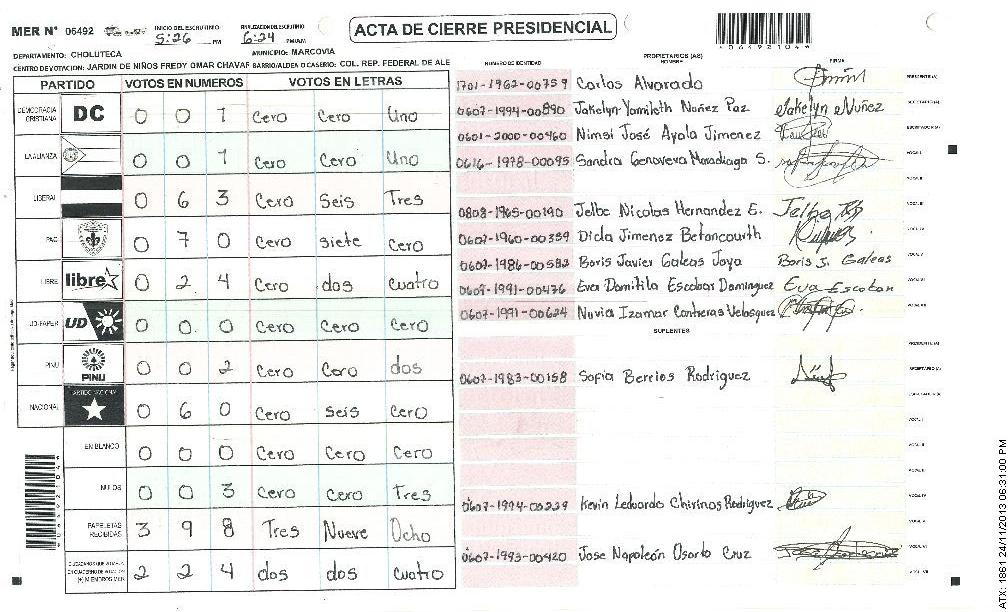 MER N° 06492
INICIO DEL ESCRUTINIO
5:26 PM
FINALIZACION DEL ESCRUTINIO
6:24 PM/AM
ACTA DE CIERRE PRESIDENCIAL
DEPARTAMENTO: CHOLUTECA
MUNICIPIO: MARCOVIA
CENTRO DE VOTACION: JARDIN DE NIÑOS FREDY OMAR CHAVAR BARRIO/ALDEA O CASERIO: COL. REP. FEDERAL DE ALE
PARTIDO VOTOS EN NUMEROS VOTOS EN LETRAS
DEMOCRACIA CRISTIANA DC 0 0 1 Cero Cero Uno
LA ALIANZA 0 0 1 Cero Cero Uno
LIBERAL 0 6 3 Cero Seis Tres
PAC 0 7 0 Cero siete cero
LIBRE libre 0 2 4 Cero dos cuatro
UD-FAPER UD 0 0 0 Cero Cero Cero
PINU PINU 0 0 2 Cero Cero dos
NACIONAL PARTIDO NACIONAL 0 6 0 Cero seis cero
EN BLANCO 0 0 0 Cero Cero Cero
NULOS 0 0 3 Cero Cero Tres
PAPELETAS RECIBIDAS 3 9 8 Tres Nueve Ocho
CIUDADANOS QUE VOTARON EN CUADERNO DE VOTACION (+) MIEMBROS MER 2 2 4 dos dos cuatro
NUMERO DE IDENTIDAD
PROPIETARIOS (AS)
NOMBRE
FIRMA
1701-1962-00759 Carlos Alvarado PRESIDENTE (A)
0607-1994-00890 Jakelyn Yamileth Nuñez Paz Jakelyn Nuñez SECRETARIO (A)
0601-2000-00460 Nimsi José Ayala Jimenez ESCRUTADOR (A)
0616-1978-00095 Sandra Genoveva Maradiaga S. VOCAL I
VOCAL II
0808-1965-00190 Jelbe Nicolas Hernandez E. VOCAL III
0607-1960-00359 Dicla Jimenez Betancourth VOCAL IV
0607-1986-00583 Boris Javier Galeas Joya Boris J. Galeas VOCAL V
0609-1991-00476 Eva Domitila Escobar Dominguez Eva Escobar VOCAL VI
0607-1991-00624 Nuvia Izamar Contreras Velasquez VOCAL VII
SUPLENTES
PRESIDENTE (A)
0607-1983-00158 Sofia Berrios Rodriguez SECRETARIO (A)
ESCRUTADOR (A)
VOCAL I
VOCAL II
VOCAL III
0607-1994-00239 Kevin Leduardo Chirinos Rodriguez VOCAL IV
VOCAL V
0607-1993-00420 Jose Napoleón Osorto Cruz VOCAL VI
VOCAL VII
ATX: 1861 24/11/2013 06:31:00 PM